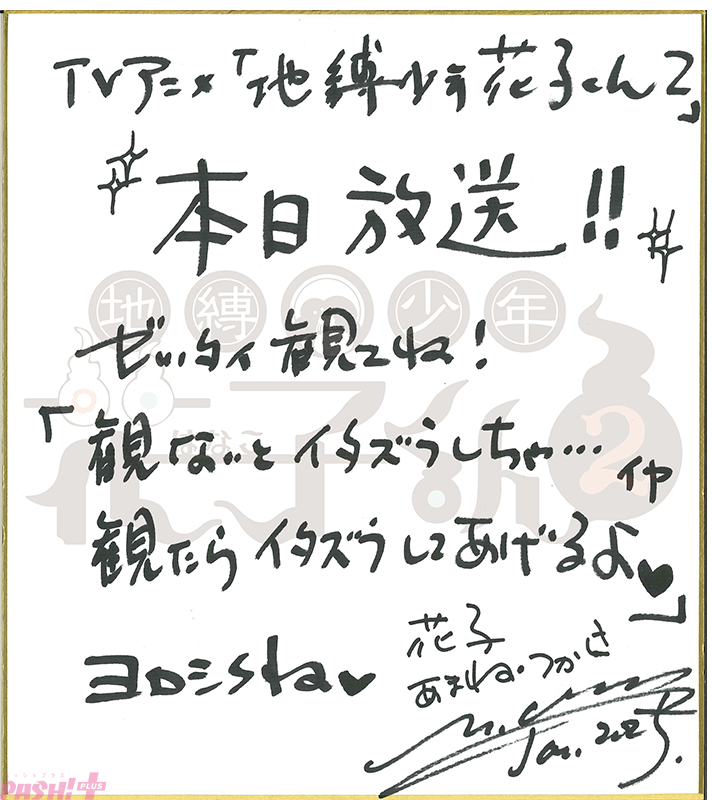 TVアニメ「地縛少年花子くん2」
本日放送!!
地縛少年
ぜったい観てね!
「観ないとイタズラしちゃ…
イヤ
観たらイタズラしてあげるよ♥」
2
花子
あまね・つかさ
ヨロシくね♥
Jan. 2025.
PASH! PLUS